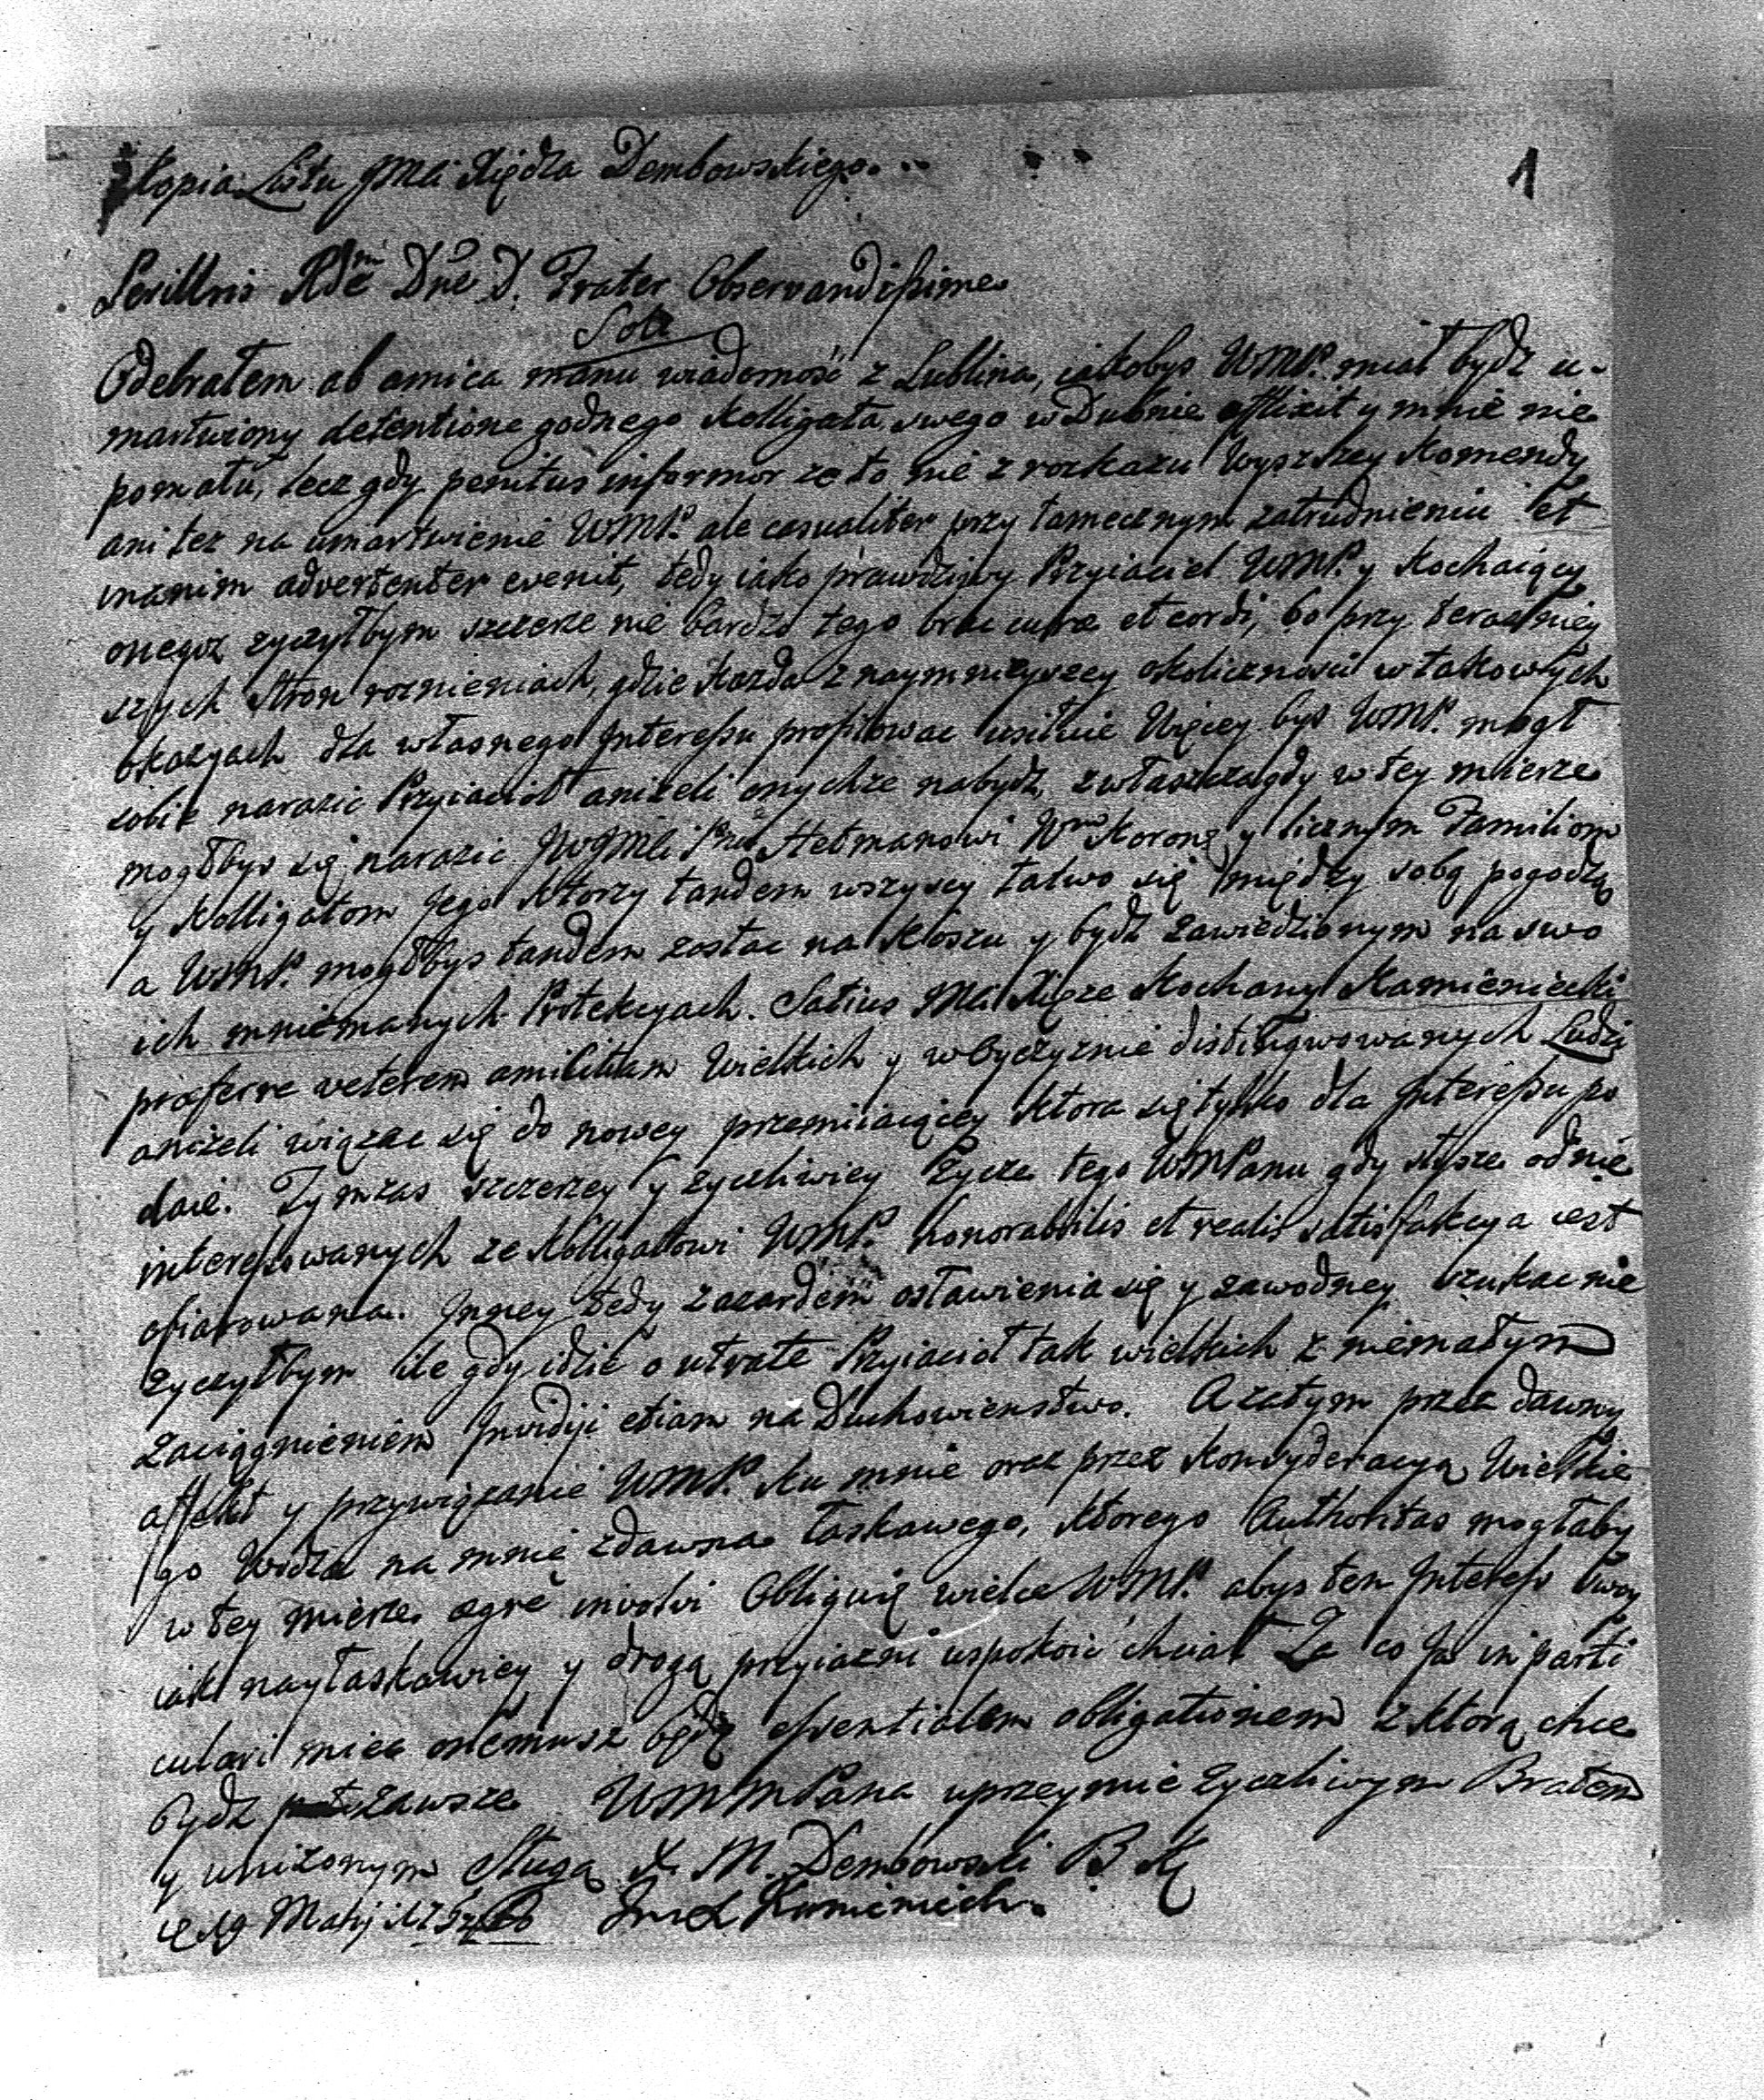 Kopia Listu JMci Xiędza Dembowskiego...
1
Perillris Rdme Dne D. Frater Observandissime
Odebrałem ab amica manu wiadomość z Lublina, iakobyś WMP. miał bydź u-
martwiony detentione godnego Kolligata swego w Dubnie afflixit y mnie nie
pomału, lecz gdy penitus informor ze to nie z rozkazu Wyszszey Komendy
ani tez na umartwienie WMP. ale casualiter przy tamecznym zatrudnieniu et
advertenter evenit, tedy iako prawdziwy Przyiaciel WMP. y Kochaiący
onegoz zyczyłbym szczerze nie bardzo tego brac curæ et cordi, bo przy teraznie
szych stron roznieniach, gdzie kazda z naymnieyszey okolicznosci w takowych
okazyach dla własnego Interessu profitowac usiłuie Więcey bys WMP. mogł
sobie narazic Przyiacioł anizeli onychze nabydz, zwłaszcza gdy w tey mierze
mogłbys się narazic JWJMci Panu Hetmanowi Wmu Koronu y licznym Familiom
y Kolligatom Jego ktorzy tandem wszyscy łatwo się między sobą pogodzą
a WMP. mogłbys tandem zostac na koszu y bydz zawiedzionym na swo
ich mniemanych Protekcyach. Satius Mci Xięze Kochany Kamieniecki
præferre veterem amicitiam Wielkich y w Oyczyznie distingwowanych Ludzi
anizeli wiązac się do nowey przemiiaiącey ktora się tylko dla Interessu po
daie. Tym zas szczerzey y zyczliwiey zycze tego WMPanu gdy słysze od nie
interessowanych ze Kolligatowi WMP. honorabilis et realis satisfakcya iest
ofiarowana. Inney tedy zazardem ostawienia się y zawodney szukac nie
zyczyłbym ile gdy idzie o utrate Przyiacioł tak wielkich z niemałym
zaciągnieniem Invidyi etiam na Duchowienstwo. A zatym przez dawny
affekt y przywiązanie WMP. ku mnie oraz przez konsyderacyą Wielkie
go Wodza na mnie zdawna łaskawego, ktorego Authoritas mogłaby
w tey mierze ægre involvi Obliguię wielce WMP. abys ten Interess swoy
iak nayłaskawiey y drogą przyiazni uspokoic chciał Za co Ja in parti
culari miec onemusz będę essentialem obligationem z ktorą chce
bydz zawsze WMMPana uprzeymie zyczliwym Bratem
y unizonym sługą X. M. Dembowski B K
19 Maij